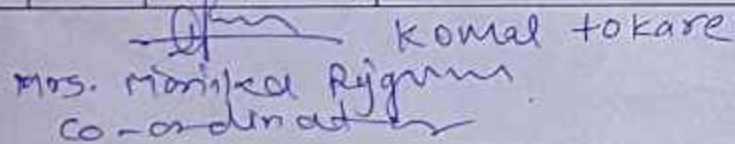 Komal tokare
Mrs. Monika
Co-ordinator